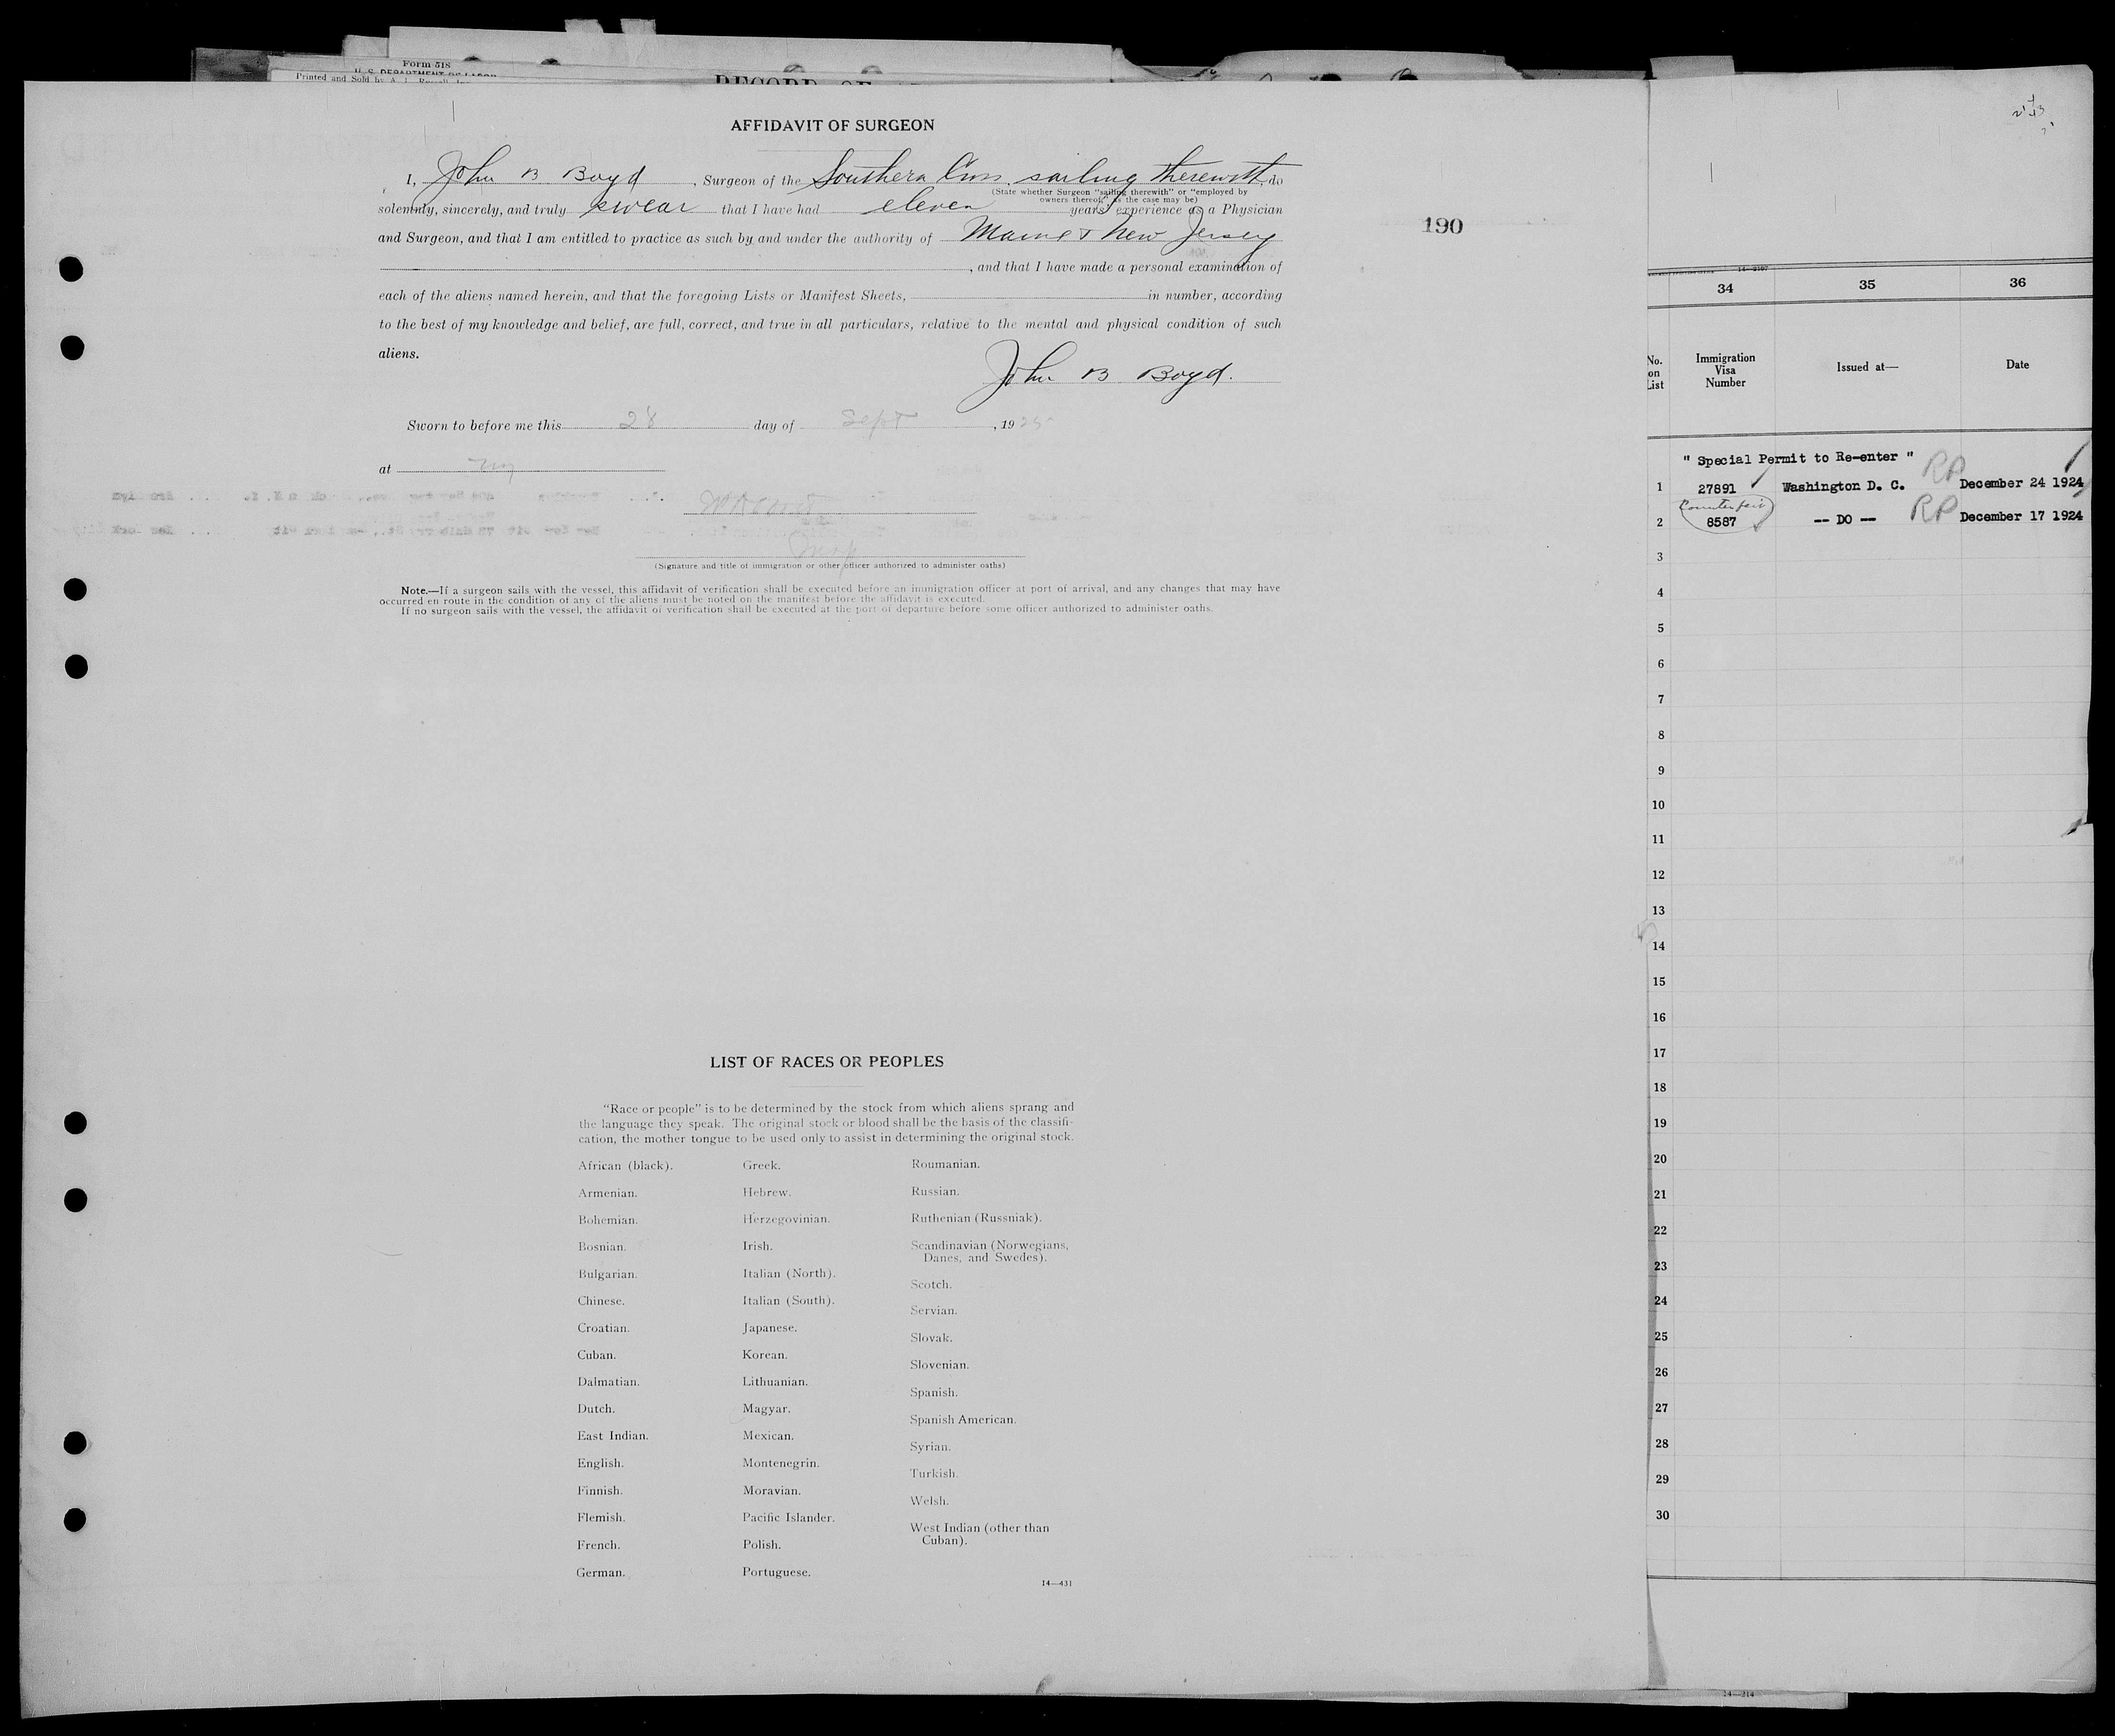 Form 518
U. S. DEPARTMENT OF LABOR
Printed and Sold by A. J.
RECORD OF
AFFIDAVIT OF SURGEON
I, John B Boyd, Surgeon of the Southern Cross, sailing therewith, do
(State whether Surgeon "sailing therewith" or "employed by
owners thereof," as the case may be)
solemnly, sincerely, and truly swear that I have had eleven years' experience as a Physician
and Surgeon, and that I am entitled to practice as such by and under the authority of Maine & New Jersey
, and that I have made a personal examination of
each of the aliens named herein, and that the foregoing Lists or Manifest Sheets, in number, according
to the best of my knowledge and belief, are full, correct, and true in all particulars, relative to the mental and physical condition of such
aliens.
John B Boyd.
Sworn to before me this 28 day of Sept, 1925
at NY
(Signature and title of immigration or other officer authorized to administer oaths)
Note.—If a surgeon sails with the vessel, this affidavit of verification shall be executed before an immigration officer at port of arrival, and any changes that may have
occurred en route in the condition of any of the aliens must be noted on the manifest before the affidavit is executed.
If no surgeon sails with the vessel, the affidavit of verification shall be executed at the port of departure before some officer authorized to administer oaths.
190
LIST OF RACES OR PEOPLES
"Race or people" is to be determined by the stock from which aliens sprang and
the language they speak. The original stock or blood shall be the basis of the classifi-
cation, the mother tongue to be used only to assist in determining the original stock.
African (black).
Armenian.
Bohemian.
Bosnian.
Bulgarian.
Chinese.
Croatian.
Cuban.
Dalmatian.
Dutch.
East Indian.
English.
Finnish.
Flemish.
French.
German.
Greek.
Hebrew.
Herzegovinian.
Irish.
Italian (North).
Italian (South).
Japanese.
Korean.
Lithuanian.
Magyar.
Mexican.
Montenegrin.
Moravian.
Pacific Islander.
Polish.
Portuguese.
Roumanian.
Russian.
Ruthenian (Russniak).
Scandinavian (Norwegians,
Danes, and Swedes).
Scotch.
Servian.
Slovak.
Slovenian.
Spanish.
Spanish American.
Syrian.
Turkish.
Welsh.
West Indian (other than
Cuban).
14—431
34 35 36
No.
on
List
Immigration
Visa
Number
Issued at—
Date
" Special Permit to Re-enter "
1 27891 Washington D. C. RP December 24 1924
Counterfeit
2 8587 -- DO -- RP December 17 1924
3
4
5
6
7
8
9
10
11
12
13
14
15
16
17
18
19
20
21
22
23
24
25
26
27
28
29
30
14—214